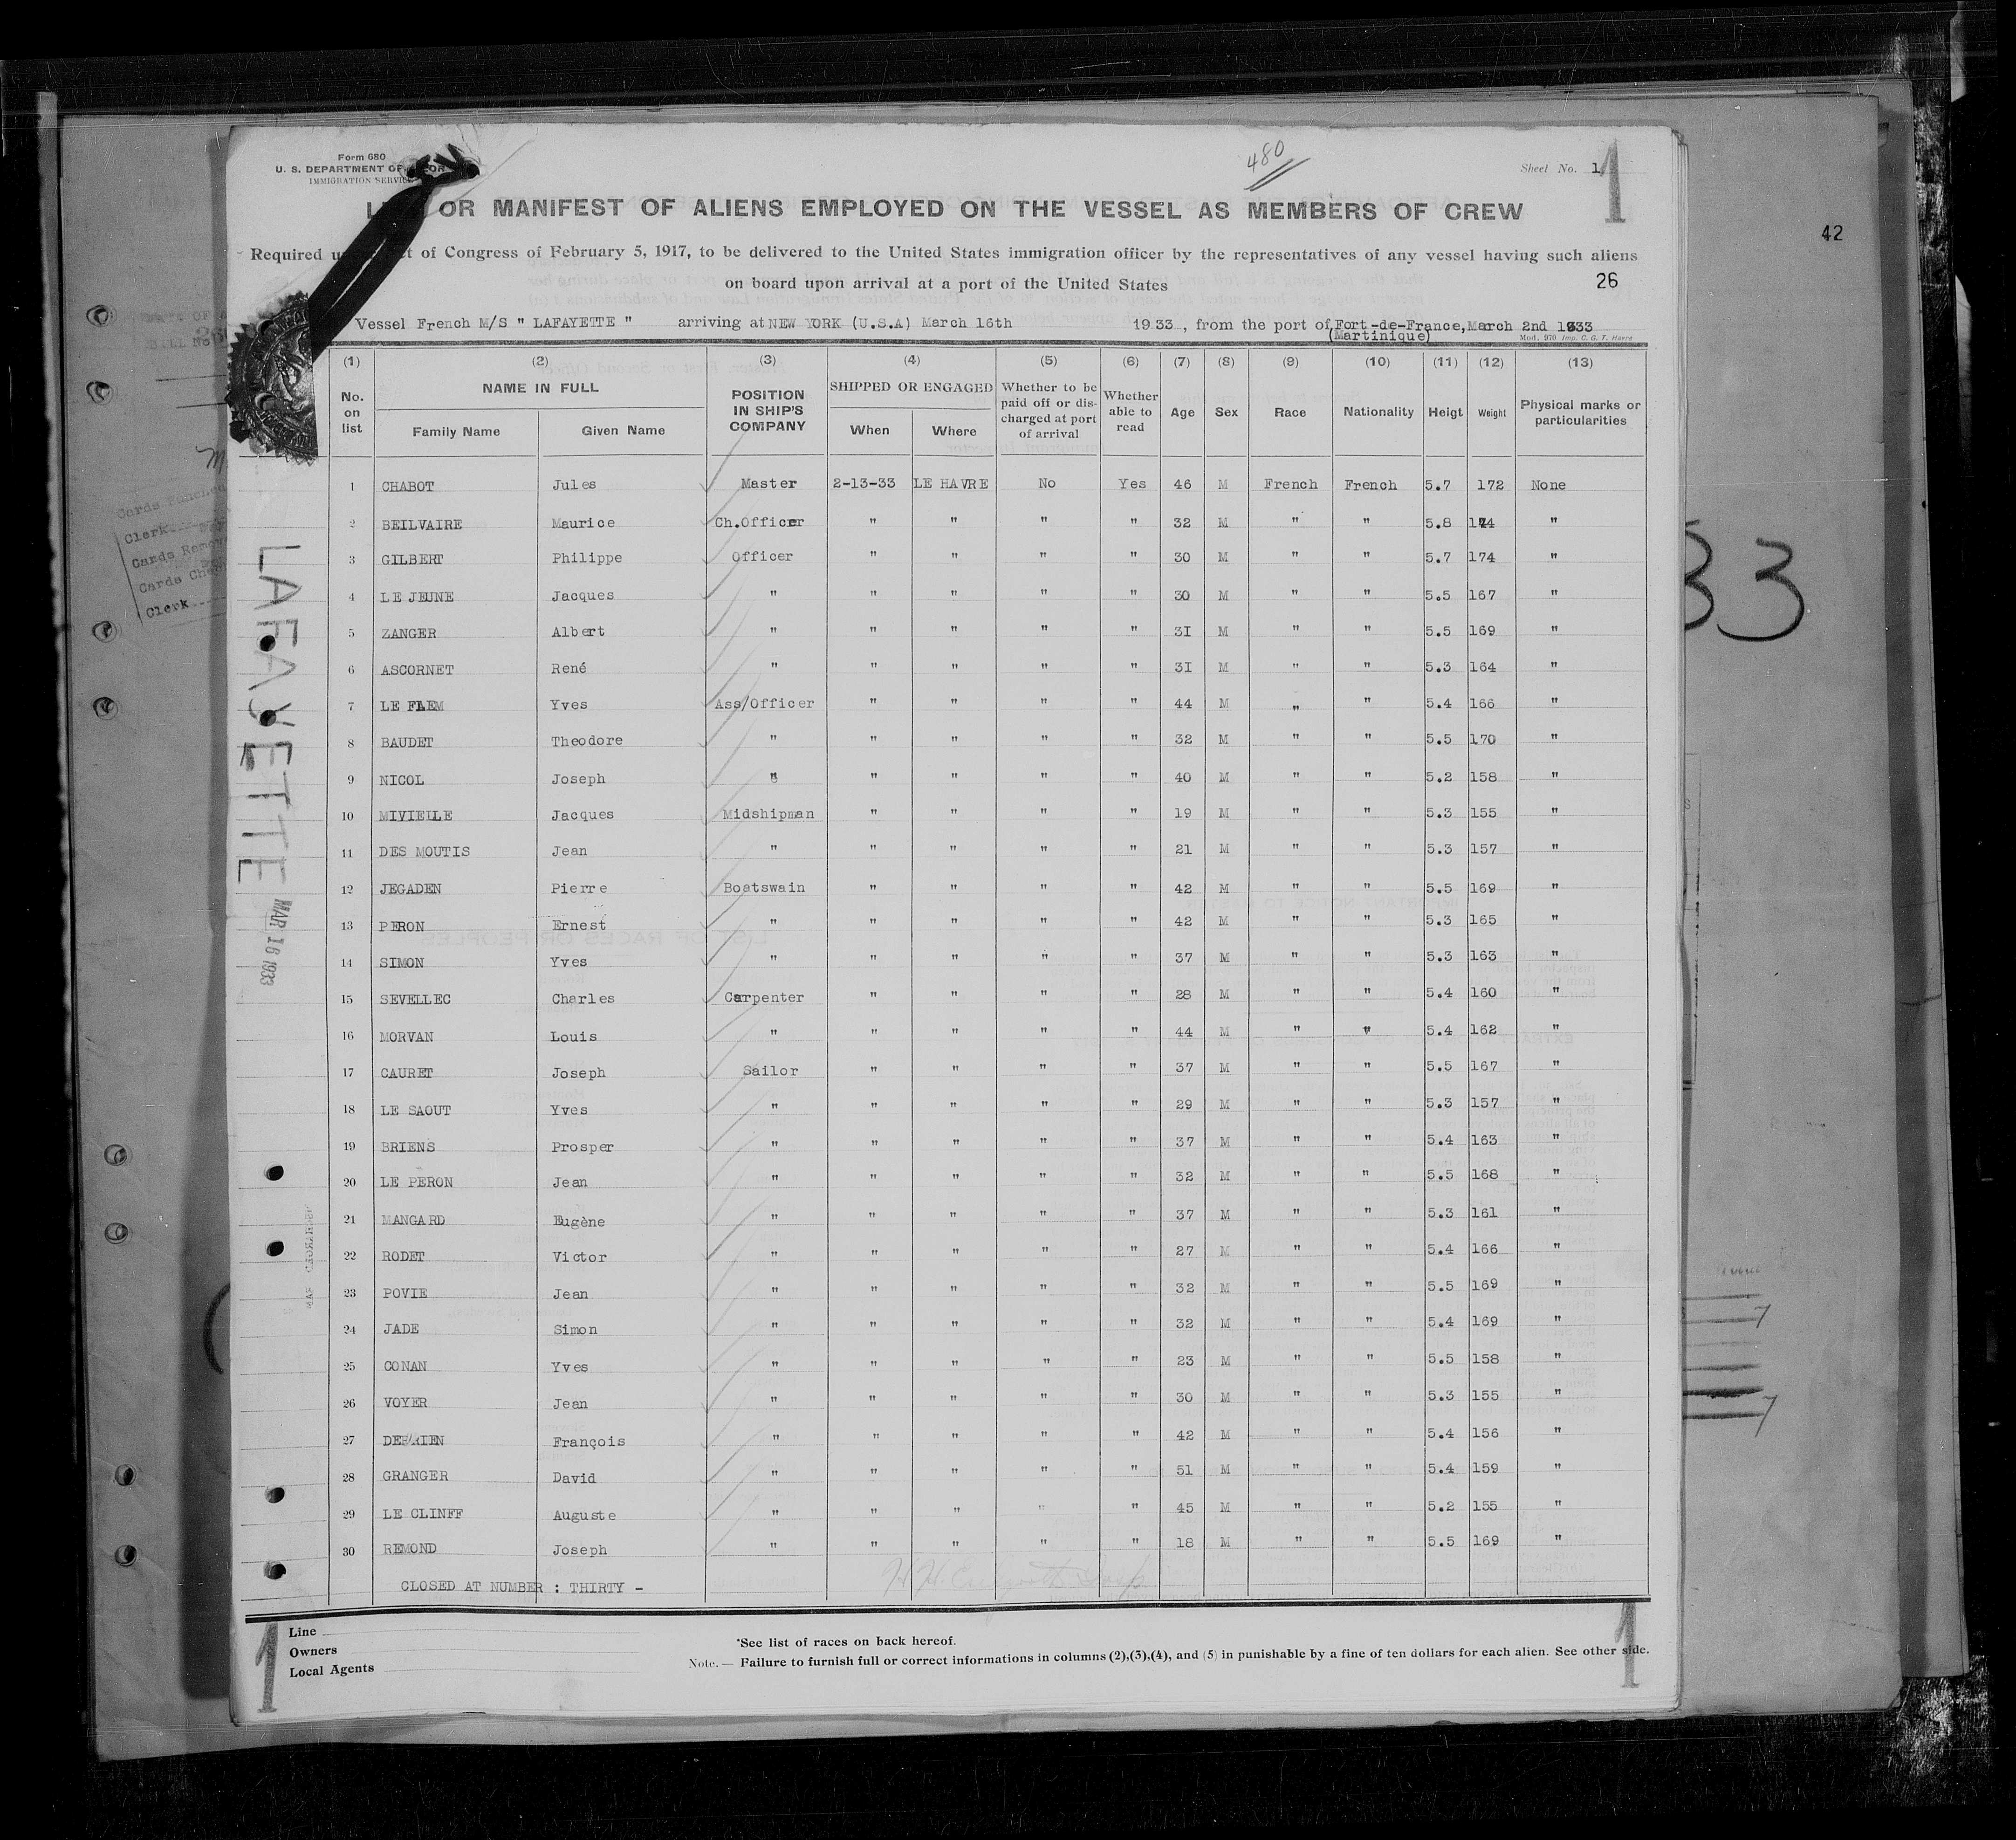 Form 680
U. S. DEPARTMENT OF
IMMIGRATION SERVICE
480
Sheet No. 1
1
OR MANIFEST OF ALIENS EMPLOYED ON THE VESSEL AS MEMBERS OF CREW
Required of Congress of February 5, 1917, to be delivered to the United States immigration officer by the representatives of any vessel having such aliens
on board upon arrival at a port of the United States
26
42
Vessel French M/S " LAFAYETTE " arriving at NEW YORK (U.S.A) March 16th 1933, from the port of Fort-de-France, March 2nd 1933
(Martinique)
Mod. 970 Imp. C. G. T. Havre
(1) (2) (3) (4) (5) (6) (7) (8) (9) (10) (11) (12) (13)
No. on list NAME IN FULL Family Name Given Name POSITION IN SHIP'S COMPANY SHIPPED OR ENGAGED When Where Whether to be paid off or discharged at port of arrival Whether able to read Age Sex Race Nationality Heigt Weight Physical marks or particularities
1 CHABOT Jules Master 2-13-33 LE HAVRE No Yes 46 M French French 5.7 172 None
2 BEILVAIRE Maurice Ch.Officer " " " " 32 M " " 5.8 174 "
3 GILBERT Philippe Officer " " " " 30 M " " 5.7 174 "
4 LE JEUNE Jacques " " " " " 30 M " " 5.5 167 "
5 ZANGER Albert " " " " " 3I M " " 5.5 169 "
6 ASCORNET René " " " " " 3I M " " 5.3 164 "
7 LE FLEM Yves Ass/Officer " " " " 44 M " " 5.4 166 "
8 BAUDET Theodore " " " " " 32 M " " 5.5 170 "
9 NICOL Joseph " " " " " 40 M " " 5.2 158 "
10 MIVIELLE Jacques Midshipman " " " " 19 M " " 5.3 155 "
11 DES MOUTIS Jean " " " " " 21 M " " 5.3 157 "
12 JEGADEN Pierre Boatswain " " " " 42 M " " 5.5 169 "
13 PERON Ernest " " " " " 42 M " " 5.3 165 "
14 SIMON Yves " " " " " 37 M " " 5.3 163 "
15 SEVELLEC Charles Carpenter " " " " 28 M " " 5.4 160 "
16 MORVAN Louis " " " " " 44 M " " 5.4 162 "
17 CAURET Joseph Sailor " " " " 37 M " " 5.5 167 "
18 LE SAOUT Yves " " " " " 29 M " " 5.3 157 "
19 BRIENS Prosper " " " " " 37 M " " 5.4 163 "
20 LE PERON Jean " " " " " 32 M " " 5.5 168 "
21 MANGARD Eugène " " " " " 37 M " " 5.3 161 "
22 RODET Victor " " " " " 27 M " " 5.4 166 "
23 POVIE Jean " " " " " 32 M " " 5.5 169 "
24 JADE Simon " " " " " 32 M " " 5.4 169 "
25 CONAN Yves " " " " " 23 M " " 5.5 158 "
26 VOYER Jean " " " " " 30 M " " 5.3 155 "
27 François " " " " " 42 M " " 5.4 156 "
28 GRANGER David " " " " " 51 M " " 5.4 159 "
29 LE CLINFF Auguste " " " " " 45 M " " 5.2 155 "
30 REMOND Joseph " " " " " 18 M " " 5.5 169 "
CLOSED AT NUMBER : THIRTY -
Line
Owners
Local Agents
*See list of races on back hereof.
Note. — Failure to furnish full or correct informations in columns (2),(3),(4), and (5) in punishable by a fine of ten dollars for each alien. See other side.
1
1
LAFAYETTE
MAR 16 1933
Cards Punched
Clerk
Cards
Cards
Clerk
33
7
7